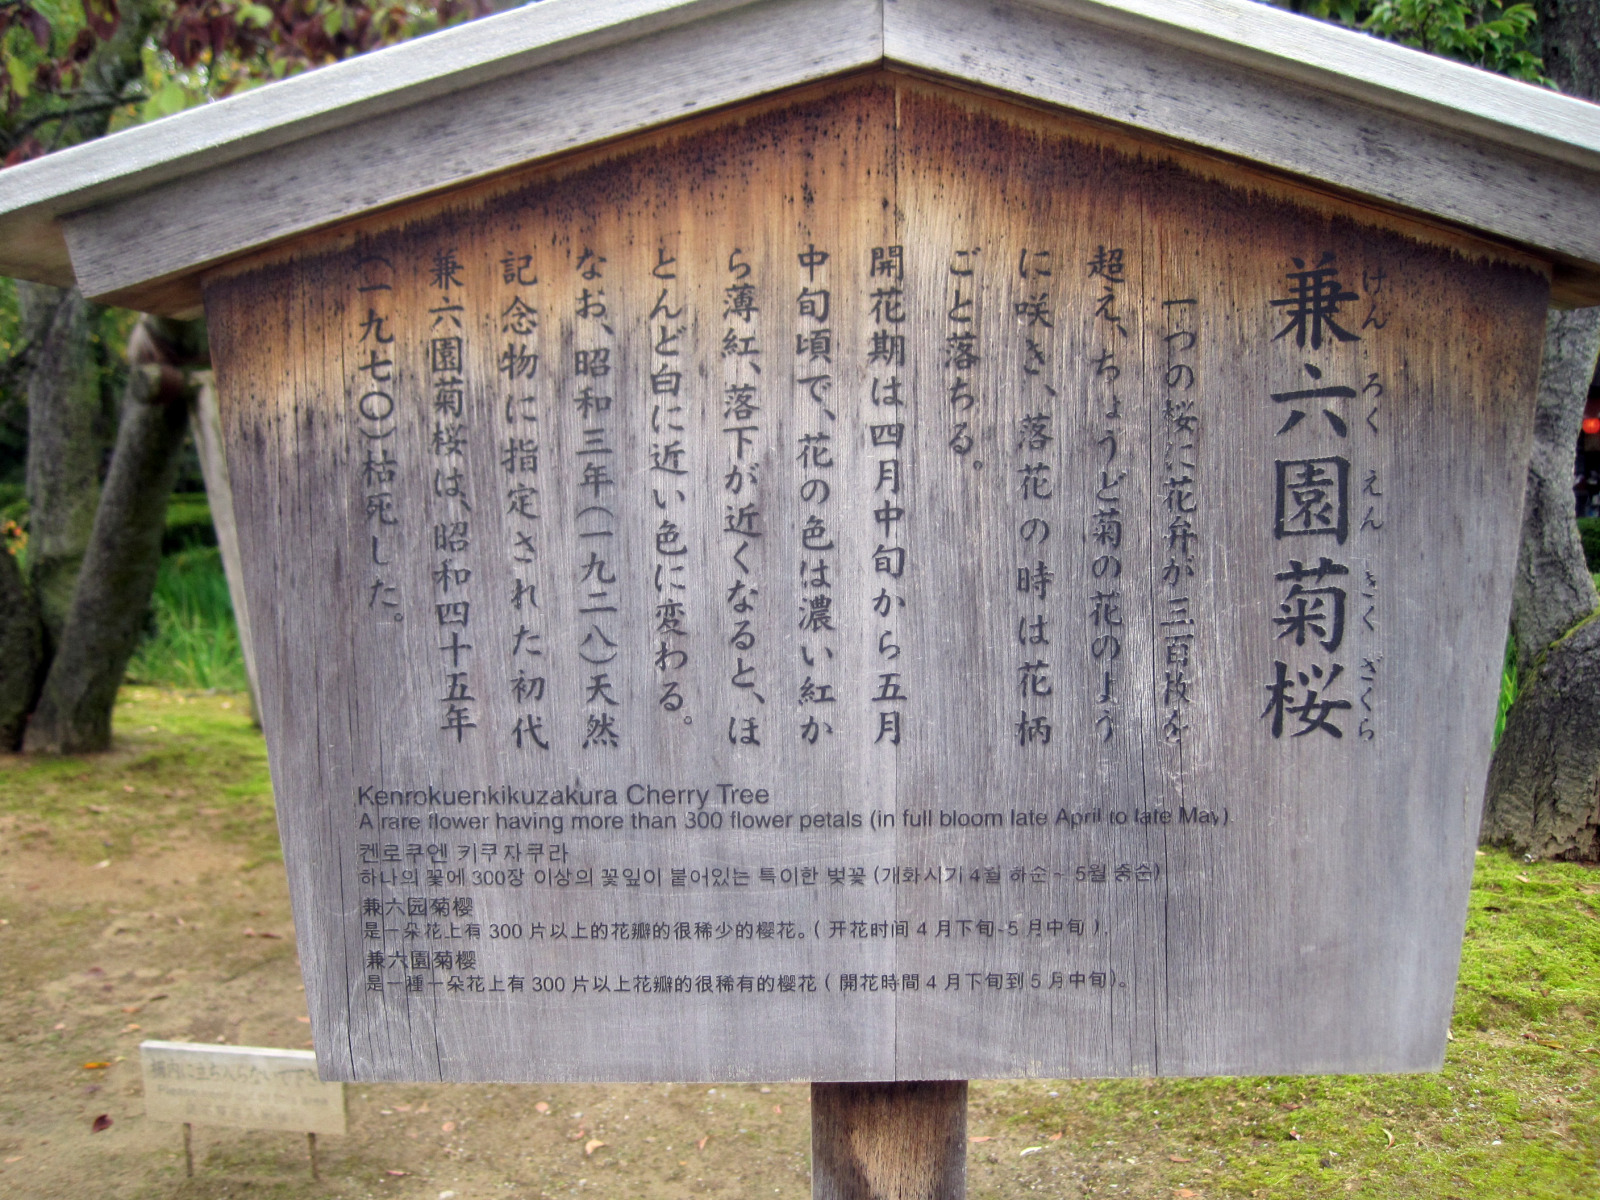 兼六園菊桜
けんろくえんきくざくら
一つの桜に花弁が三百枚を
超え、ちょうど菊の花のよう
に咲き、落花の時は花柄
ごと落ちる。
開花期は四月中旬から五月
中旬頃で、花の色は濃い紅か
ら薄紅、落下が近くなると、ほ
とんど白に近い色に変わる。
なお、昭和三年(一九二八)天然
記念物に指定された初代
兼六園菊桜は、昭和四十五年
(一九七〇)枯死した。
Kenrokuenkikuzakura Cherry Tree
A rare flower having more than 300 flower petals (in full bloom late April to late May).
켄로쿠엔 키쿠자쿠라
하나의 꽃에 300장 이상의 꽃잎이 붙어있는 특이한 벚꽃 (개화시기 4월 하순~ 5월 중순)
兼六园菊樱
是一朵花上有 300 片以上的花瓣的很稀少的樱花。( 开花时间 4 月下旬-5 月中旬 ).
兼六園菊樱
是一種一朵花上有 300 片以上花瓣的很稀有的樱花 ( 開花時間 4 月下旬到 5 月中旬)。